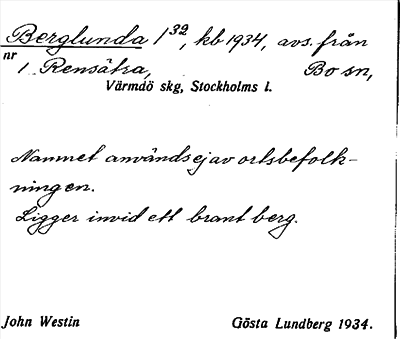 Berglunda 1³², kb 1934, avs. från
nr 1 Rensätra, Bo sn,
Värmdö skg, Stockholms l.
Namnet användsejav ortsbefolk-
ningen.
Ligger invid ett brant berg.
John Westin Gösta Lundberg 1934.